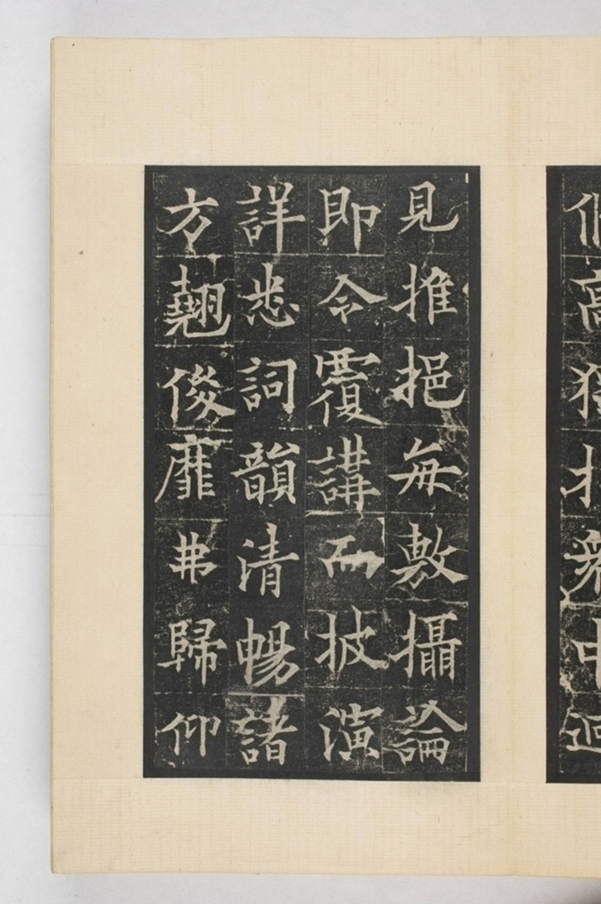 見推挹每敷攝論
即令覆講而披演
詳悉詞韻清暢諸
方翹俊靡弗歸仰